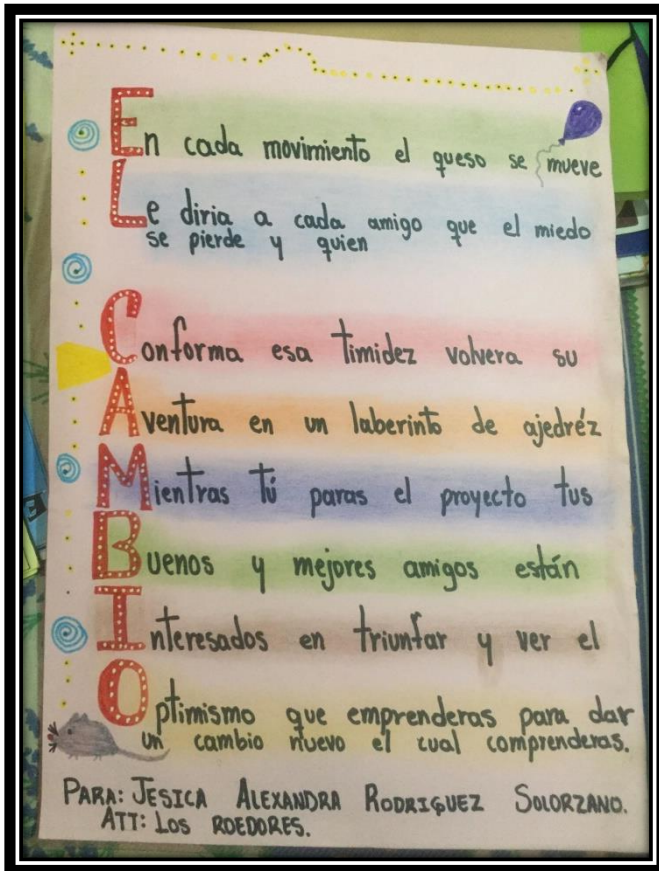 En cada movimiento el queso se mueve
Le diria a cada amigo que el miedo
se pierde y quien
Conforma esa timidez volvera su
Aventura en un laberinto de ajedréz
Mientras tú paras el proyecto tus
Buenos y mejores amigos están
Interesados en triunfar y ver el
Optimismo que emprenderas para dar
un cambio nuevo el cual comprenderas.
PARA: JESICA ALEXANDRA RODRIGUEZ SOLORZANO.
ATT: LOS ROEDORES.